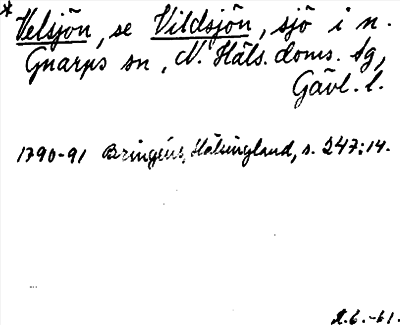 * Velsjön, se Vildsjön, sjö i n.
Gnarps sn, N. Häls. doms. sg,
Gävl. l.
1790-91 Bringéus, Hälsingland, s. 247:14.
2.6.-61.